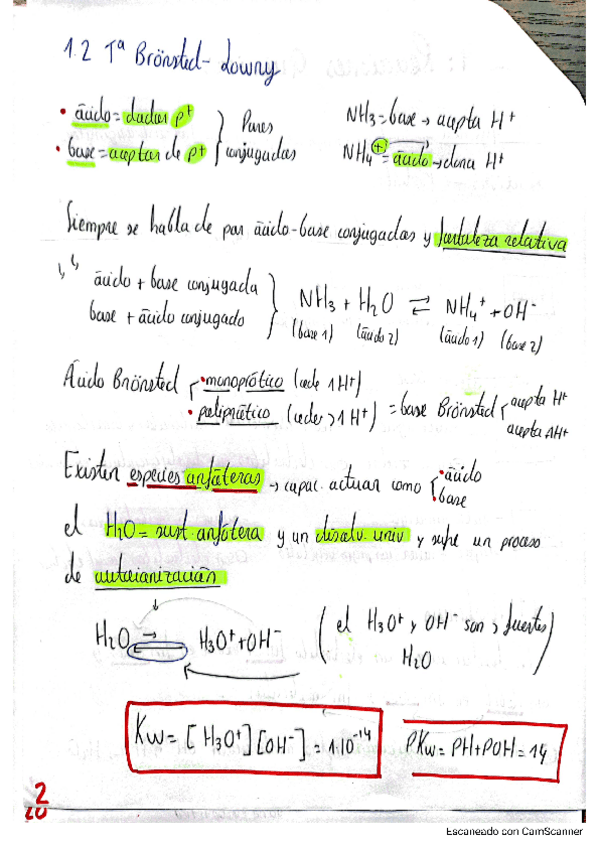 1.2 Tª Brönsted-Lowry
• ácido = dador p+
• base = aceptor de p+
Pares conjugados
NH3 = base → acepta H+
NH4+ = ácido → dona H+
Siempre se habla de par ácido-base conjugados y fortaleza relativa
ácido + base conjugada
base + ácido conjugado
NH3 + H2O ⇄ NH4+ + OH-
(base 1) (ácido 2) (ácido 1) (base 2)
Ácido Brönsted
• monoprótico (cede 1H+)
• poliprótico (ceder > 1 H+)
= base Brönsted
acepta H+
acepta AH+
Existen especies anfóteras → capac. actuar como
• ácido
• base
el H2O = sust. anfótera y un disolv. univ y sufre un proceso
de autoionización
H2O ⇄ H3O+ + OH-
(el H3O+ y OH- son > fuertes)
H2O
Kw = [H3O+][OH-] = 1·10-14
PKw = PH + POH = 14
2
20
Escaneado con CamScanner